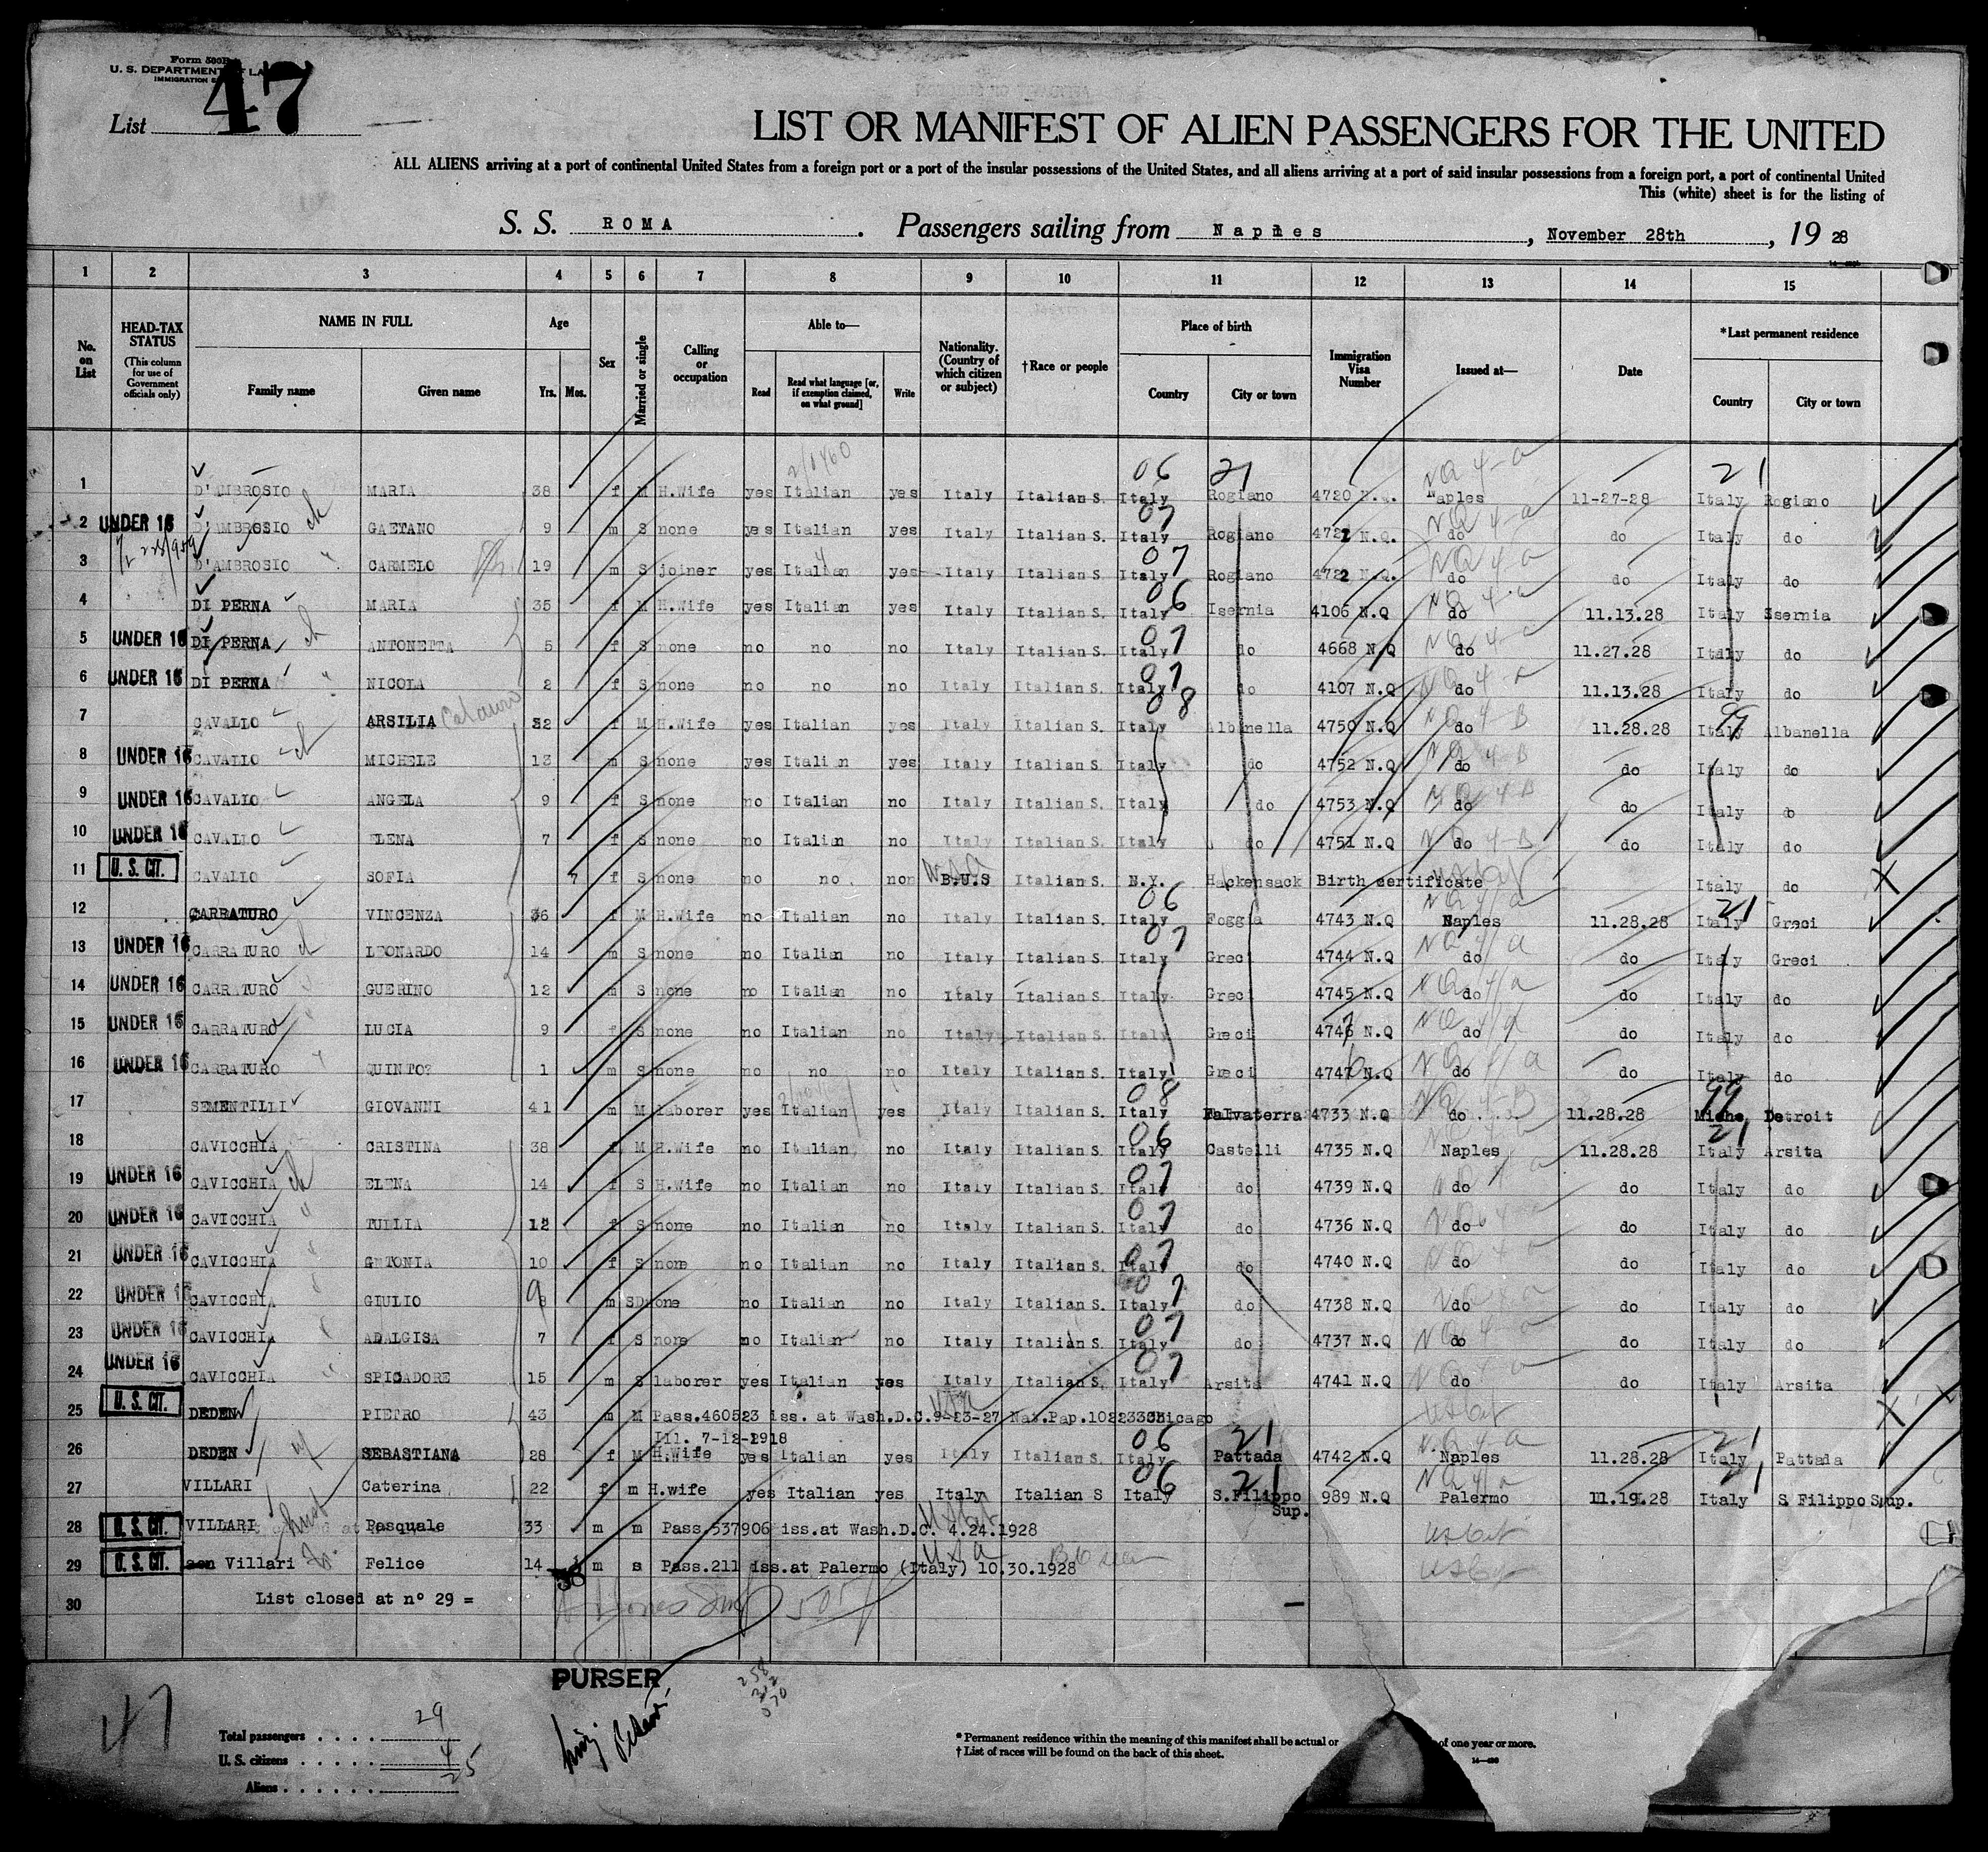 Form 500B
U. S. DEPARTMENT OF LA
IMMIGRATION
List 47
LIST OR MANIFEST OF ALIEN PASSENGERS FOR THE UNITED
ALL ALIENS arriving at a port of continental United States from a foreign port or a port of the insular possessions of the United States, and all aliens arriving at a port of said insular possessions from a foreign port, a port of continental United
This (white) sheet is for the listing of
S. S. ROMA . Passengers sailing from Naples , November 28th , 19 28
1 2 3 4 5 6 7 8 9 10 11 12 13 14 15
No. on List
HEAD-TAX STATUS (This column for use of Government officials only)
NAME IN FULL Family name Given name
Age Yrs. Mos.
Sex
Married or single
Calling or occupation
Able to— Read Read what language [or, if exemption claimed, on what ground] Write
Nationality. (Country of which citizen or subject)
†Race or people
Place of birth Country City or town
Immigration Visa Number
Issued at—
Date
*Last permanent residence Country City or town
1 D'AMBROSIO MARIA 38 f M H.Wife yes Italian yes Italy Italian S. Italy 06 21 Rogiano 4720 N.Q. Naples NQ 4-a 11-27-28 Italy 21 Rogiano
2 UNDER 16 D'AMBROSIO GAETANO 9 m S none yes Italian yes Italy Italian S. Italy 07 Rogiano 4721 N.Q. do NQ 4-a do Italy do
3 D'AMBROSIO CARMELO 19 m S joiner yes Italian yes Italy Italian S. Italy 07 Rogiano 4722 N.Q. do NQ 4 a do Italy do
4 DI PERNA MARIA 35 f M H.Wife yes Italian yes Italy Italian S. Italy 06 Isernia 4106 N.Q do NQ 4-a 11.13.28 Italy Isernia
5 UNDER 16 DI PERNA ANTONETTA 5 f S none no no no Italy Italian S. Italy 07 do 4668 N.Q do NQ 4-a 11.27.28 Italy do
6 UNDER 16 DI PERNA NICOLA 2 f S none no no no Italy Italian S. Italy 07 do 4107 N.Q do NQ 4-a 11.13.28 Italy do
7 CAVALLO ARSILIA 32 f M H.Wife yes Italian yes Italy Italian S. Italy 08 Albanella 4750 N.Q do NQ 4-B 11.28.28 Italy 99 Albanella
8 UNDER 16 CAVALLO MICHELE 13 m S none yes Italian yes Italy Italian S. Italy do 4752 N.Q do NQ 4-B do Italy do
9 UNDER 16 CAVALLO ANGELA 9 f S none no Italian no Italy Italian S. Italy do 4753 N.Q do NQ 4B do Italy do
10 UNDER 16 CAVALLO ELENA 7 f S none no Italian no Italy Italian S. Italy do 4751 N.Q do NQ 4-B do Italy do
11 U. S. CIT. CAVALLO SOFIA 7 f S none no no non B.U.S Italian S. N.Y. Hackensack Birth certificate Italy do
12 CARRATURO VINCENZA 36 f M H.Wife no Italian no Italy Italian S. Italy 06 Foggia 4743 N.Q Naples NQ 4/a 11.28.28 Italy 21 Greci
13 UNDER 16 CARRATURO LEONARDO 14 m S none no Italian no Italy Italian S. Italy 07 Greci 4744 N.Q do NQ 4/a do Italy Greci
14 UNDER 16 CARRATURO GUERINO 12 m S none no Italian no Italy Italian S. Italy Greci 4745 N.Q do NQ 4/a do Italy do
15 UNDER 16 CARRATURO LUCIA 9 f S none no Italian no Italy Italian S. Italy Greci 4746 N.Q do NQ 4/a do Italy do
16 UNDER 16 CARRATURO QUINTO? 1 m S none no no no Italy Italian S. Italy Greci 4747 N.Q do NQ 4/a do Italy do
17 SEMENTILLI GIOVANNI 41 m M laborer yes Italian yes Italy Italian S. Italy 08 Falvaterra 4733 N.Q do NQ 4-B 11.28.28 Miche 99 Detroit
18 CAVICCHIA CRISTINA 38 f M H.Wife no Italian no Italy Italian S. Italy 06 Castelli 4735 N.Q Naples 11.28.28 Italy 21 Arsita
19 UNDER 16 CAVICCHIA ELENA 14 f S H.Wife no Italian no Italy Italian S. Italy 07 do 4739 N.Q do do Italy do
20 UNDER 16 CAVICCHIA TULLIA 12 f S none no Italian no Italy Italian S. Italy 07 do 4736 N.Q do do Italy do
21 UNDER 16 CAVICCHIA GETONIA 10 f S none no Italian no Italy Italian S. Italy 07 do 4740 N.Q do do Italy do
22 UNDER 16 CAVICCHIA GIULIO 9 m S none no Italian no Italy Italian S. Italy 07 do 4738 N.Q do do Italy do
23 UNDER 16 CAVICCHIA ADALGISA 7 f S none no Italian no Italy Italian S. Italy 07 do 4737 N.Q do do Italy do
24 UNDER 16 CAVICCHIA SPICADORE 15 m S laborer yes Italian yes Italy Italian S. Italy 07 Arsita 4741 N.Q do do Italy Arsita
25 U. S. CIT. DEDEN PIETRO 43 m M Pass.460523 iss. at Wash.D.C. 9-23-27 Nat.Pap. Chicago
Ill. 7-12-1918
26 DEDEN SEBASTIANA 28 f M H.Wife yes Italian yes Italy Italian S. Italy 06 21 Pattada 4742 N.Q Naples NQ 4-a 11.28.28 Italy 21 Pattada
27 VILLARI Caterina 22 f m H.wife yes Italian yes Italy Italian S Italy 06 21 S.Filippo Sup. 989 N.Q Palermo NQ 4/a 11.19.28 Italy 21 S Filippo Sup.
28 U. S. CIT. VILLARI Pasquale 33 m m Pass.537906 iss.at Wash.D.C. 4.24.1928 US Cit
29 U. S. CIT. son Villari Felice 14 m s Pass.211 iss.at Palermo (Italy) 10.30.1928
30 List closed at n° 29 =
PURSER
258
312
070
47
Total passengers . . . . 29
U. S. citizens . . . . 4
Aliens . . . . . . 25
* Permanent residence within the meaning of this manifest shall be actual or of one year or more.
† List of races will be found on the back of this sheet.